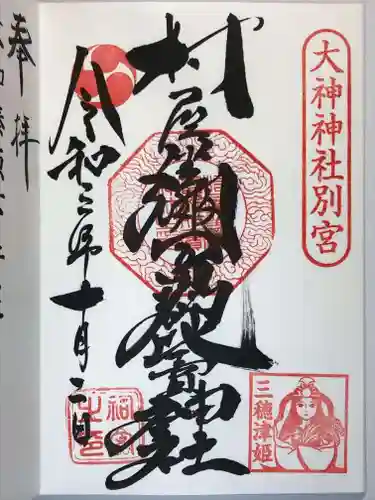 大神神社別宮
村屋坐彌冨都比賣神社
三穂津姫
令和三年十月二日
奉拝